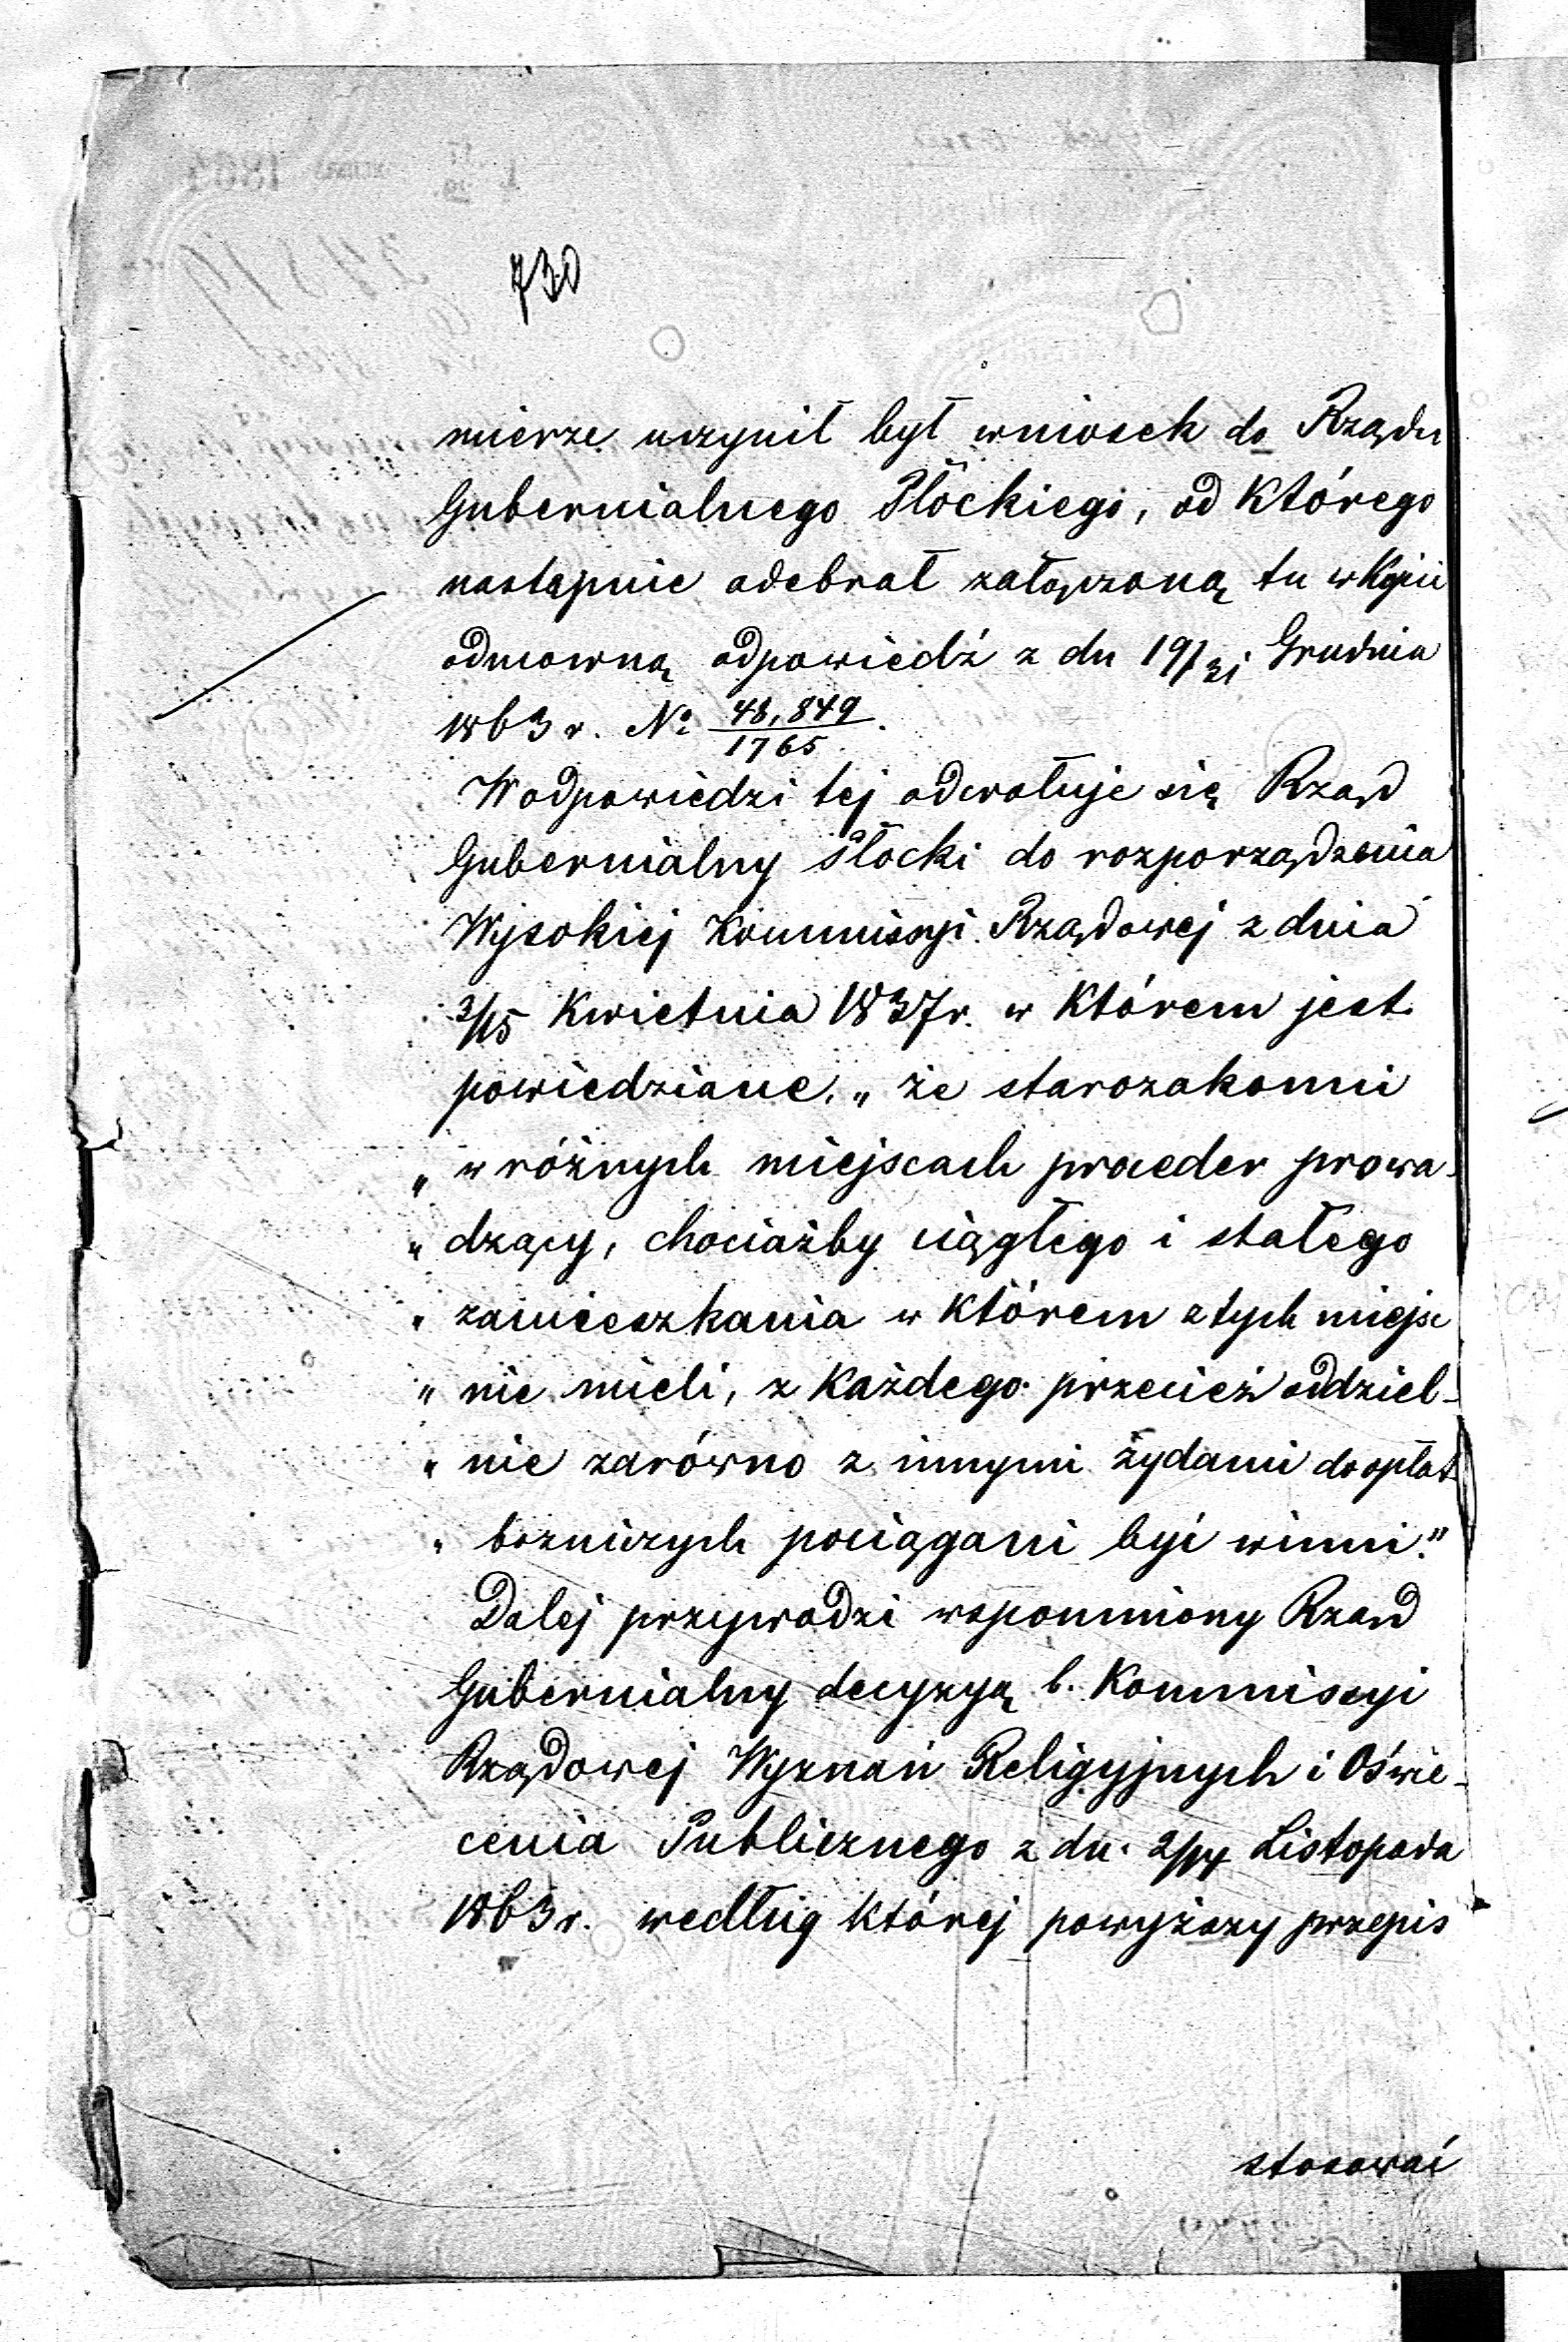 730
mierze uczynił był wniosek do Rządu
Gubernialnego Płockiego, od którego
następnie odebrał załączoną tu w Kopii
odmowną odpowiedź z du 19/31 Grudnia
1863 r. No 48,849/1765.
W odpowiedzi tej odwołuje się Rząd
Gubernialny Płocki do rozporządzenia
Wysokiej Kommissyi Rządowej z dnia
3/15 Kwietnia 1837 r. w którem jest
powiedziane, „ że starozakonni
„ w różnych miejscach proceder prowa-
„ dzący, chociażby ciągłego i stałego
„ zamieszkania w którem z tych miejsc
„ nie mieli, z każdego przecież oddziel-
„ nie zarówno z innymi żydami do opłat
„ bożniczych pociągani być winni."
Dalej przywodzi wspomniony Rząd
Gubernialny decyzyą b. Kommissyi
Rządowej Wyznań Religijnych i Oświe-
cenia Publicznego z du. 2/14 Listopada
1863 r. według której powyższy przepis
stosować